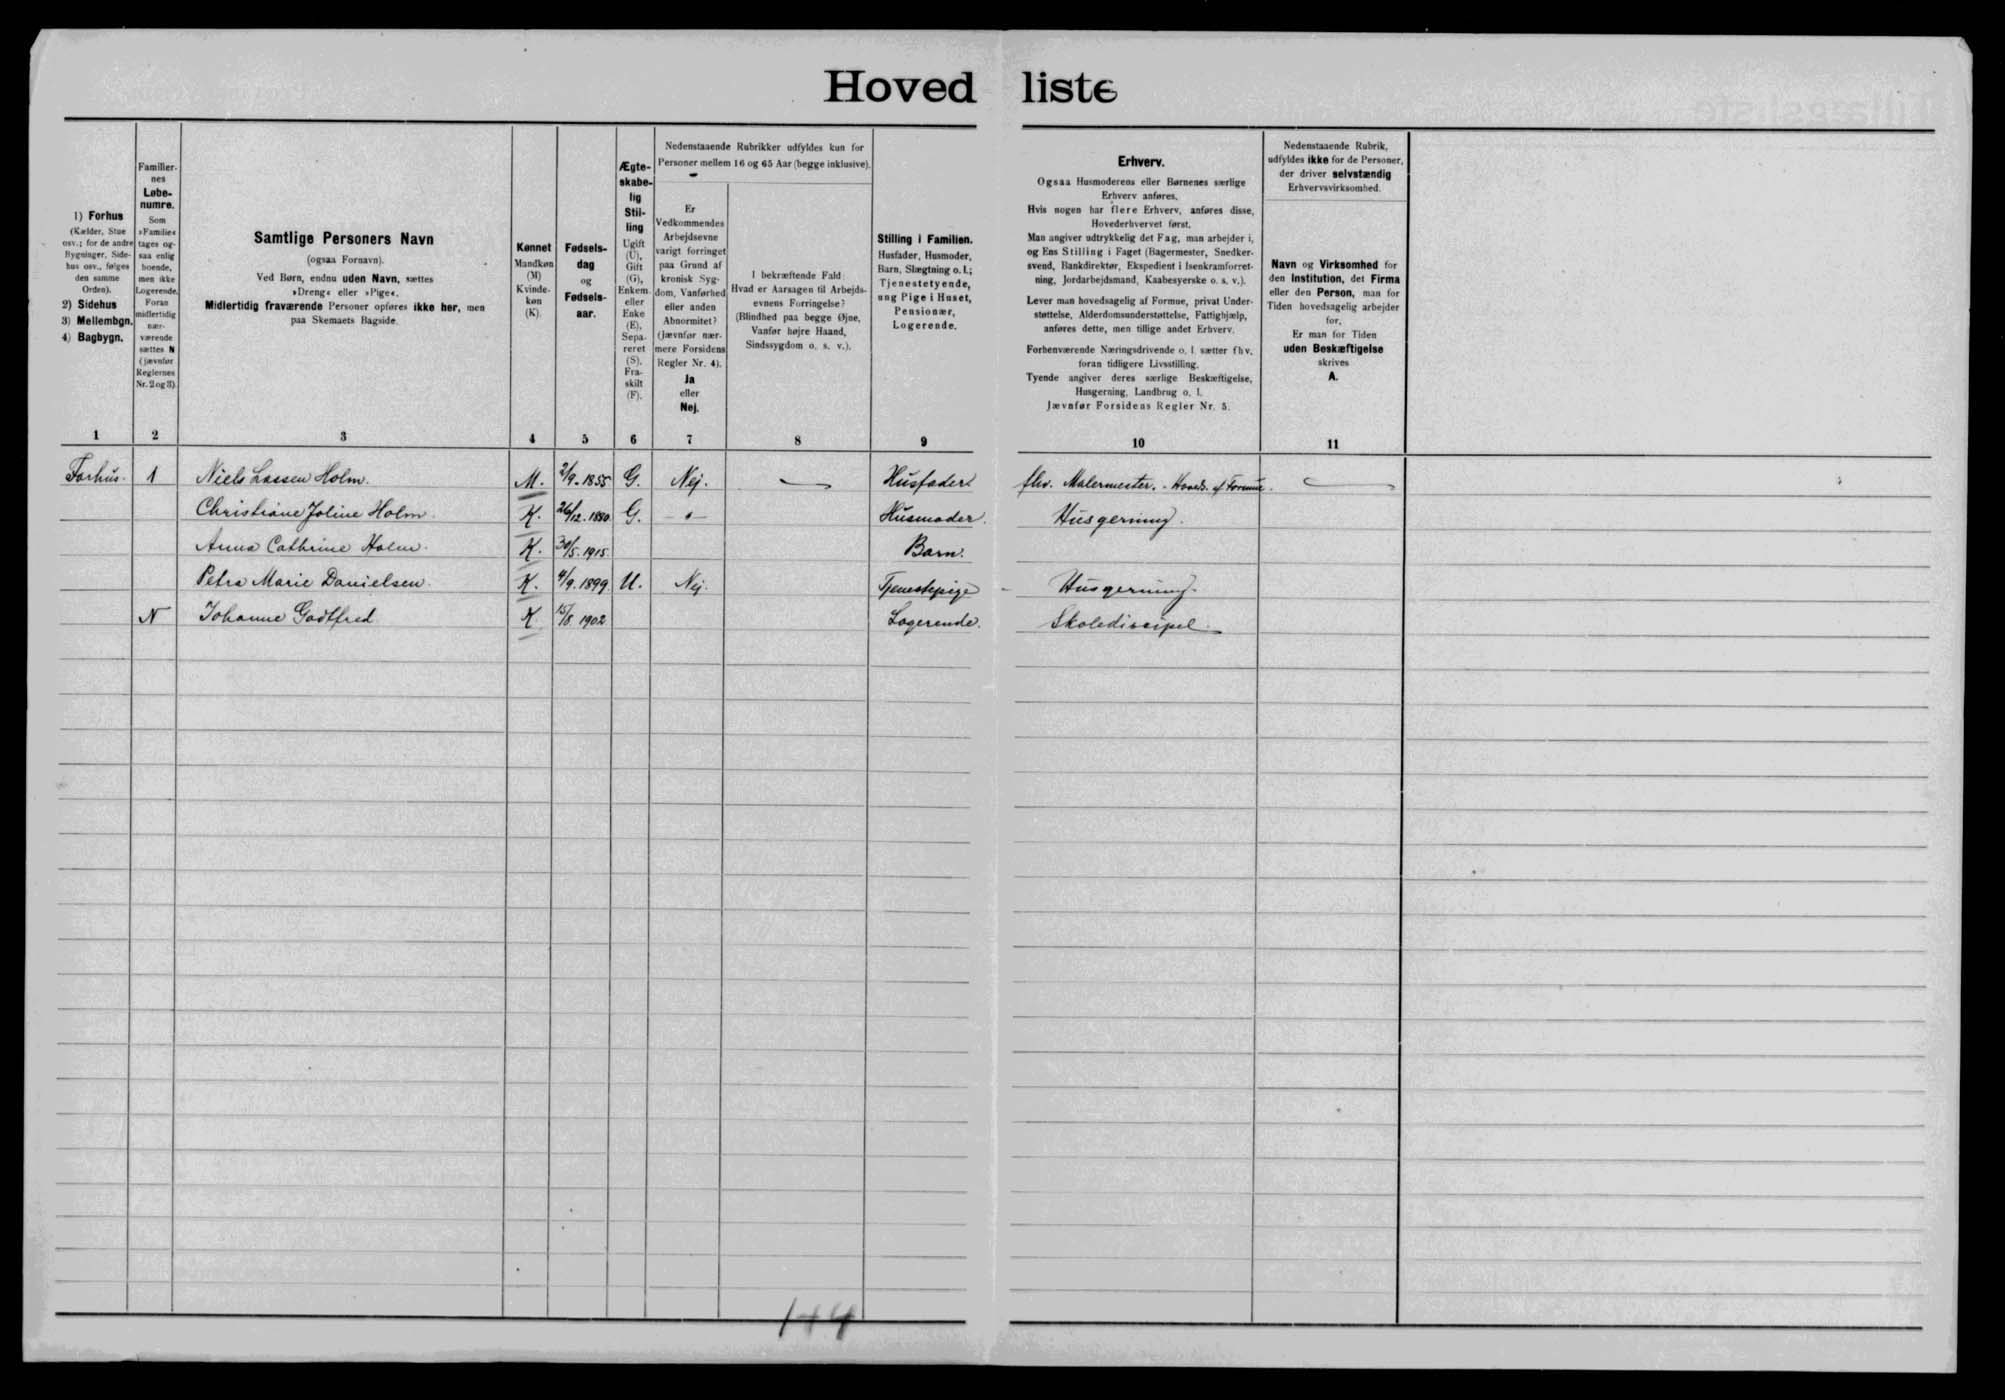 Hovedliste
1) Forhus
(Kælder, Stue
osv.; for de andre
Bygninger, Side-
hus osv., følges
den samme
Orden).
2) Sidehus
3) Mellembgn.
4) Bagbygn.
Familier-
nes
Løbe-
numre.
Som
»Familie«
tages og-
saa enlig
boende,
men ikke
Logerende.
Foran
midlertidig
nær-
værende
sættes N
(jævnfør
Reglernes
Nr. 2 og 3).
Samtlige Personers Navn
(ogsaa Fornavn).
Ved Børn, endnu uden Navn, sættes
»Dreng« eller »Pige«.
Midlertidig fraværende Personer opføres ikke her, men
paa Skemaets Bagside.
Kønnet
Mandkøn
(M)
Kvinde-
køn
(K).
Fødsels-
dag
og
Fødsels-
aar.
Ægte-
skabe-
lig
Stil-
ling
Ugift
(U),
Gift
(G),
Enkem.
eller
Enke
(E),
Sepa-
reret
(S),
Fra-
skilt
(F).
Nedenstaaende Rubrikker udfyldes kun for
Personer mellem 16 og 65 Aar (begge inklusive).
Er
Vedkommendes
Arbejdsevne
varigt forringet
paa Grund af
kronisk Syg-
dom, Vanførhed
eller anden
Abnormitet?
(Jævnfør nær-
mere Forsidens
Regler Nr. 4).
Ja
eller
Nej.
I bekræftende Fald:
Hvad er Aarsagen til Arbejds-
evnens Forringelse?
(Blindhed paa begge Øjne,
Vanfør højre Haand,
Sindssygdom o. s. v.).
Stilling i Familien.
Husfader, Husmoder,
Barn, Slægtning o. l.;
Tjenestetyende,
ung Pige i Huset,
Pensionær,
Logerende.
Erhverv.
Ogsaa Husmoderens eller Børnenes særlige
Erhverv anføres.
Hvis nogen har flere Erhverv, anføres disse,
Hovederhvervet først.
Man angiver udtrykkelig det Fag, man arbejder i,
og Ens Stilling i Faget (Bagermester, Snedker-
svend, Bankdirektør, Ekspedient i Isenkramforret-
ning, Jordarbejdsmand, Kaabesyerske o. s. v.).
Lever man hovedsagelig af Formue, privat Under-
støttelse, Alderdomsunderstøttelse, Fattighjælp,
anføres dette, men tillige andet Erhverv.
Forhenværende Næringsdrivende o. l. sætter fhv.
foran tidligere Livsstilling.
Tyende angiver deres særlige Beskæftigelse,
Husgerning, Landbrug o. l.
Jævnfør Forsidens Regler Nr. 5.
Nedenstaaende Rubrik,
udfyldes ikke for de Personer,
der driver selvstændig
Erhvervsvirksomhed.
Navn og Virksomhed for
den Institution, det Firma
eller den Person, man for
Tiden hovedsagelig arbejder
for.
Er man for Tiden
uden Beskæftigelse
skrives
A.
1 2 3 4 5 6 7 8 9 10 11
Forhus. 1 Niels Lassen Holm. M. 2/9-1855 G. Nej. — Husfader fhv. Malermester. - Hoveds. af Formue. —
Christiane Joline Holm. K. 26/12. 1880 G. - " - Husmoder. Husgerning.
Anna Cathrine Holm. K. 30/5. 1915. Barn.
Petra Marie Danielsen. K. 4/9. 1899 U. Nej. Tjenestepige - Husgerning.
N Johanne Godtfred K 15/8. 1902 Logerende. Skolediscipel.
144